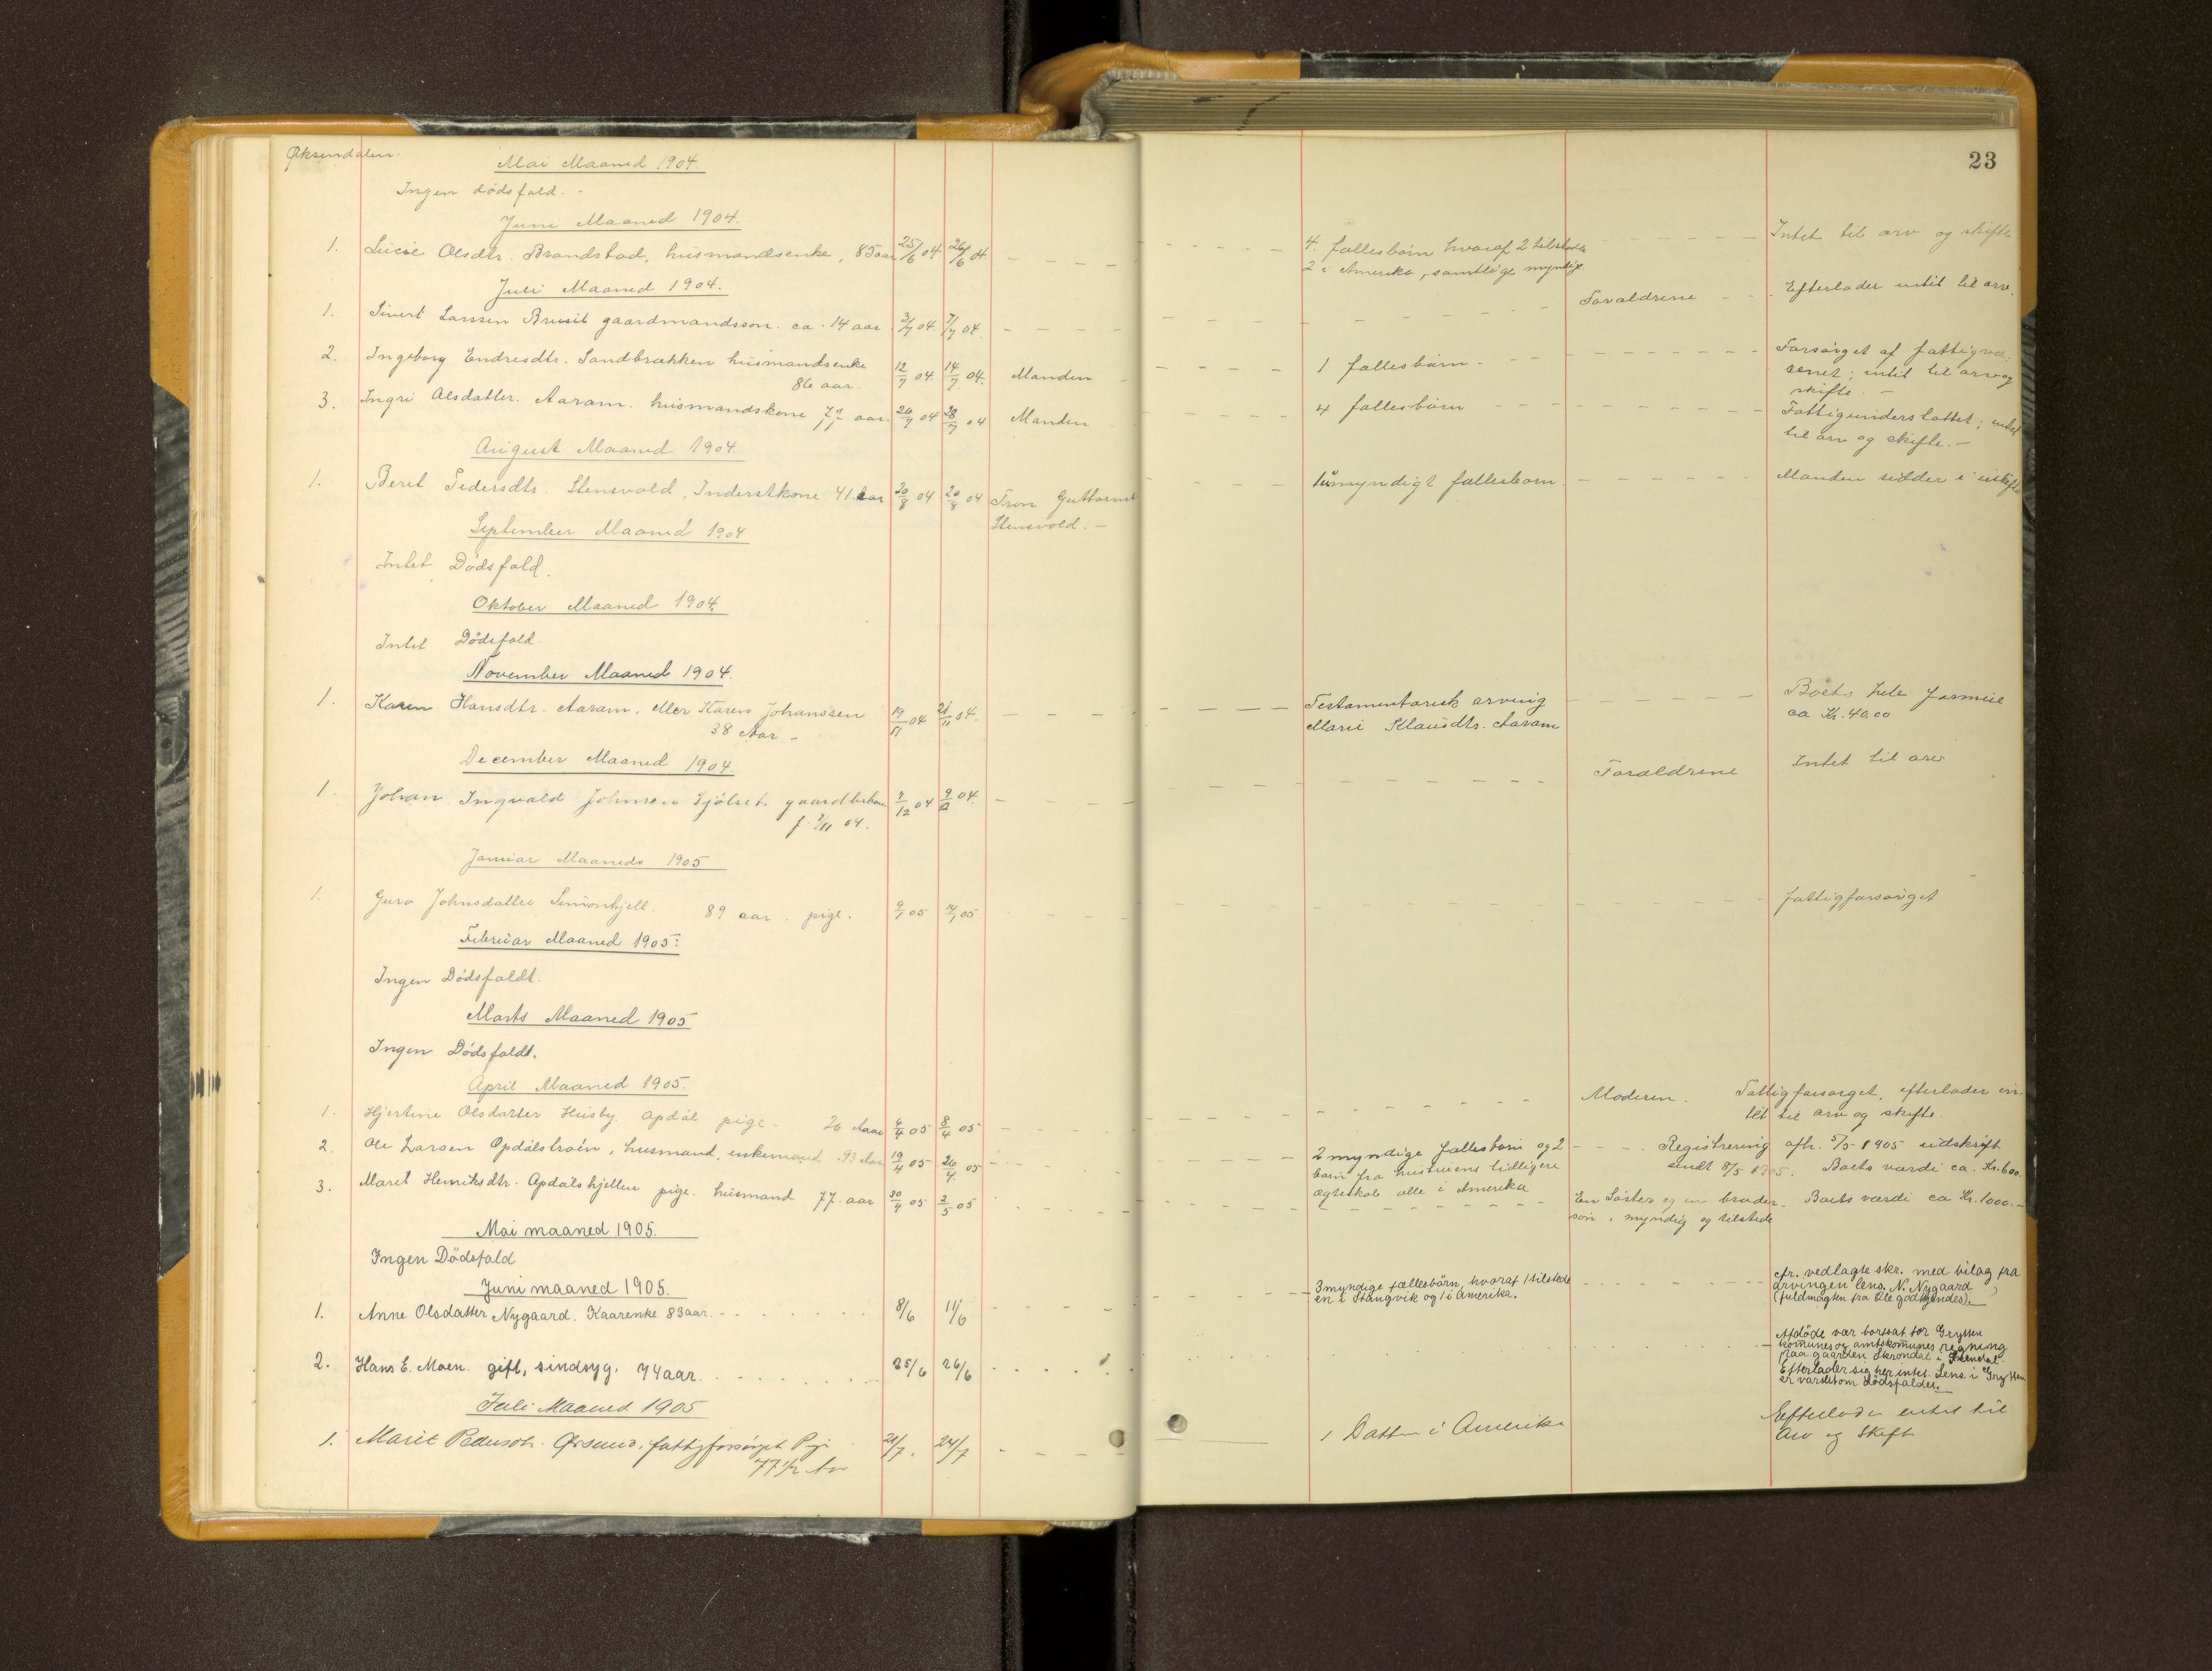 Øksendalen.
23
Mai Maaned 1904.
Ingen dødsfald. -
Juni Maaned 1904.
1. Lucie Olsdtr. Brandstad, husmandsenke, 85 aar 25/6 04 26/6 04 4 fællesbörn hvoraf 2 tilstede Intet til arv og skifte
2 i Amerika, samtlige myndige
Juli Maaned 1904.
1. Sivert Larssen Brusit gaardmandsson. ca. 14 aar 3/7 04. 7/7 04. Forældrene Efterlader intit til arv.
2. Ingeborg Endresdtr. Sandbrækken husmandsenke 12/7 04. 14/7 04. Manden 1 fællesbarn - Forsörget af fattigvæ-
86 aar. senet; intit til arv og
skifte. -
3. Ingri Olsdatter. Aaram. husmandskone aar. 26/7 04 28/7 04 Manden 4 fællesbörn Fattigunderstöttet; intet
til arv og skifte. -
August Maaned 1904.
1. Beret Pedersdtr. Stensvold, Inderstkone 41 Aar 20/8 04 04 Tron Guttorms 1 umyndigt fællesbarn Manden sidder i uskifte
Stensvold. -
September Maaned 1904
Intet Dødsfald.
Oktober Maaned 1904.
Intet Dödsfald.
November Maaned 1904.
1. Karen Hansdtr. Aaram. eller Karen Johanssen 19/11 04 21/11 04. Testamentarisk arving Boets hele formue
38 Aar - Marie Klausdtr. Aaram ca Kr. 40,00
December Maaned 1904.
1 Johan Ingvald Johnsen Sjölset, 04 9/12 04. Forældrene Intet til arv
04.
Januar Maaneds 1905
1. Guro Johnsdatter Simonhjell. 89 aar. pige. 9/1 05 14/1 05 fattigforsörget
Februar Maaned 1905:
Ingen Dödsfaldt.
Marts Maaned 1905
Ingen Dödsfaldt.
April Maaned 1905.
1. Hjertine Olsdatter Husby. Opdöl pige - 26 Aar 6/4 05 8/4 05 Moderen. Fattigforsørget, efterlader in-
tet til arv og skifte.
2. Ole Larsen Opdölstrøen, husmand, enkemand. 93 Aar 19/4 05 26/4 05 2 myndige fællesbörn og 2 Registrering afh. 5/5 1905 udskrift
börn fra hustruens tidligere sendt 8/5 1905. Boets værdi ca. Kr. 600.
ægteskab alle i Amerika
3. Marit Henriksdtr. Opdölshjellen pige. husmand 77. aar 30/4 05 2/5 05 En Söster og en broder- Boets værdi ca Kr. 1000. -
sön, myndig og tilstede
Mai maaned 1905.
Ingen Dödsfald
Juni maaned 1905.
1. Anne Olsdatter Nygaard. Kaarenke 83 aar. 8/6 11/6 3 myndige fællesbörn, hvoraf 1 tilstede cfr. vedlagte skr. med bilag fra
en i Stangvik og 1 i Amerika. arvingen lens. N. Nygaard
(fuldmagten fra Ole godkjendes).
2. Hans E. Moen. gift, sindsyg. 74 aar. 25/6 26/6 Afdöde var bortsat for Grytten
komunes og amtskomunes regning
paa gaarden Skrondal i
Efterlader sig her intet. Lens. i Grytten
er varslet om dödsfaldet.
Juli Maaned 1905
1. Marit Ørsund, fattigforsörget 21/7. 24/7 1 Datter i Amerika Efterlader intet til
77 1/2 Aar Arv og Skift